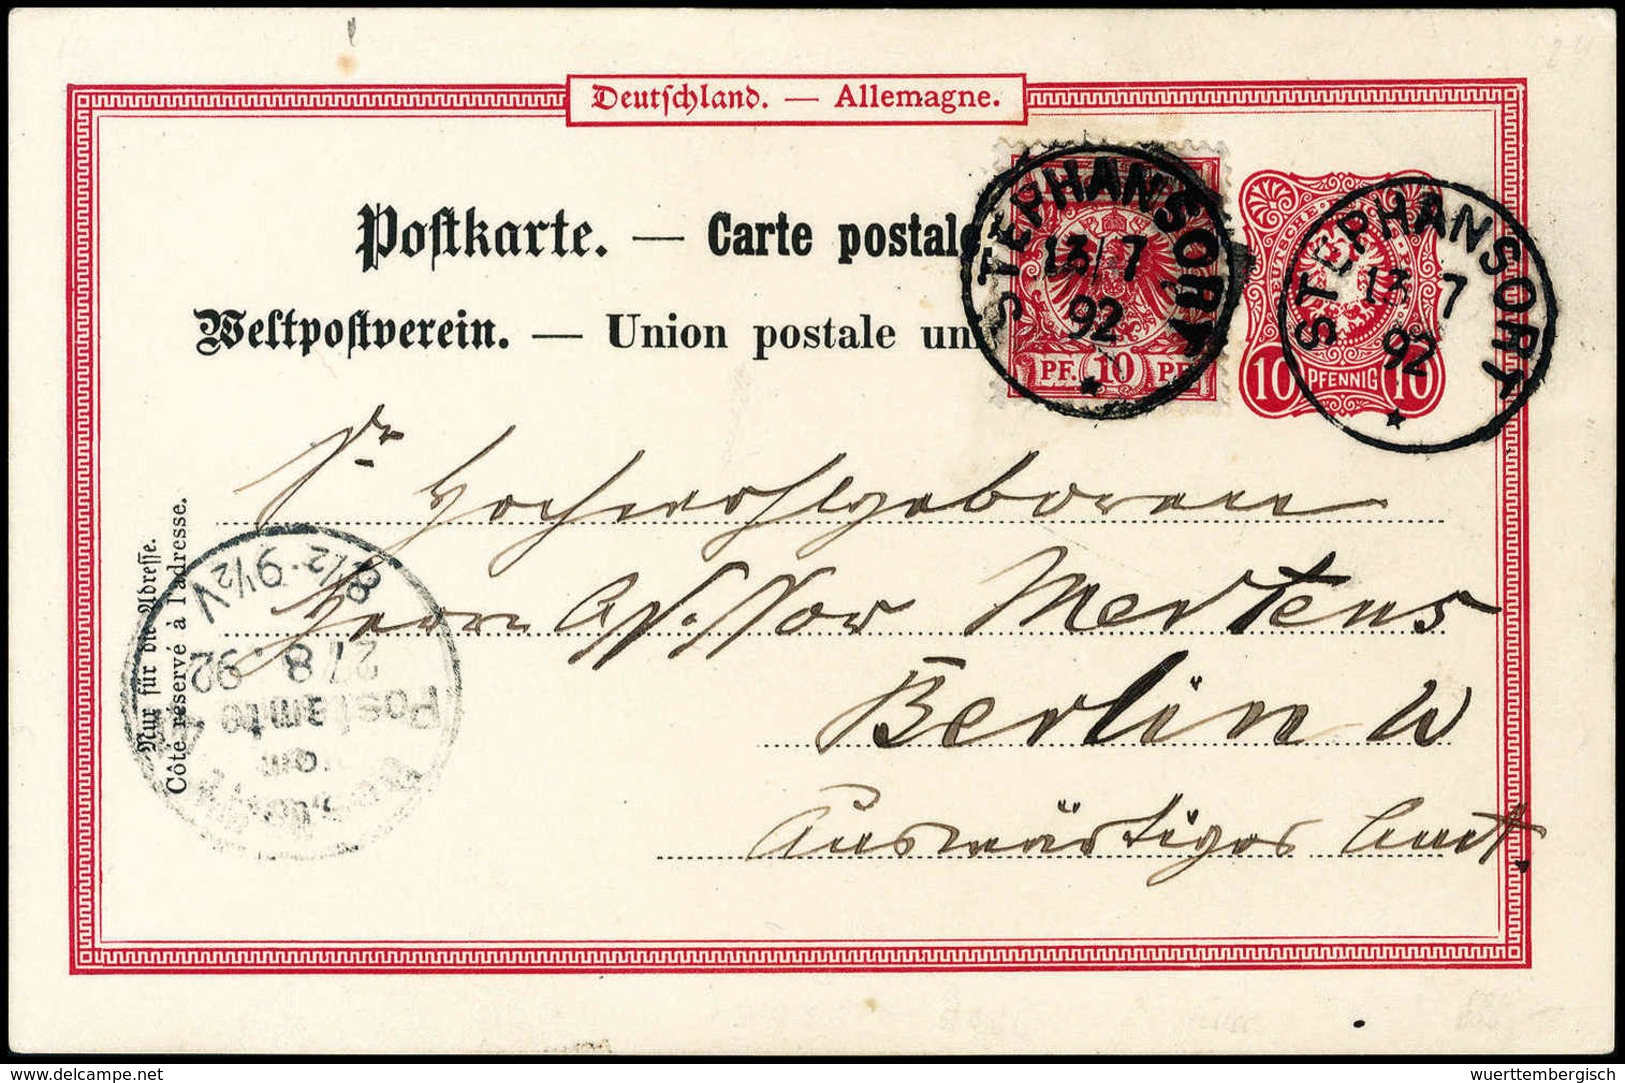 Deutschland. — Allemagne.
Postkarte. — Carte postale
Weltpostverein. — Union postale un
STEPHANSORT
13/7
92
PF. 10 PF.
STEPHANSORT
13 7
92
DEUTSCHE
10 PFENNIG 10
Sr Hochwohlgeboren
Herrn Assessor Mertens
Berlin W
Auswärtiges Amt.
Nur für die Adresse.
Côté réservé à l'adresse.
8½-9½V
27 8.92
Postamte
vom
delcampe.net
wuerttembergisch